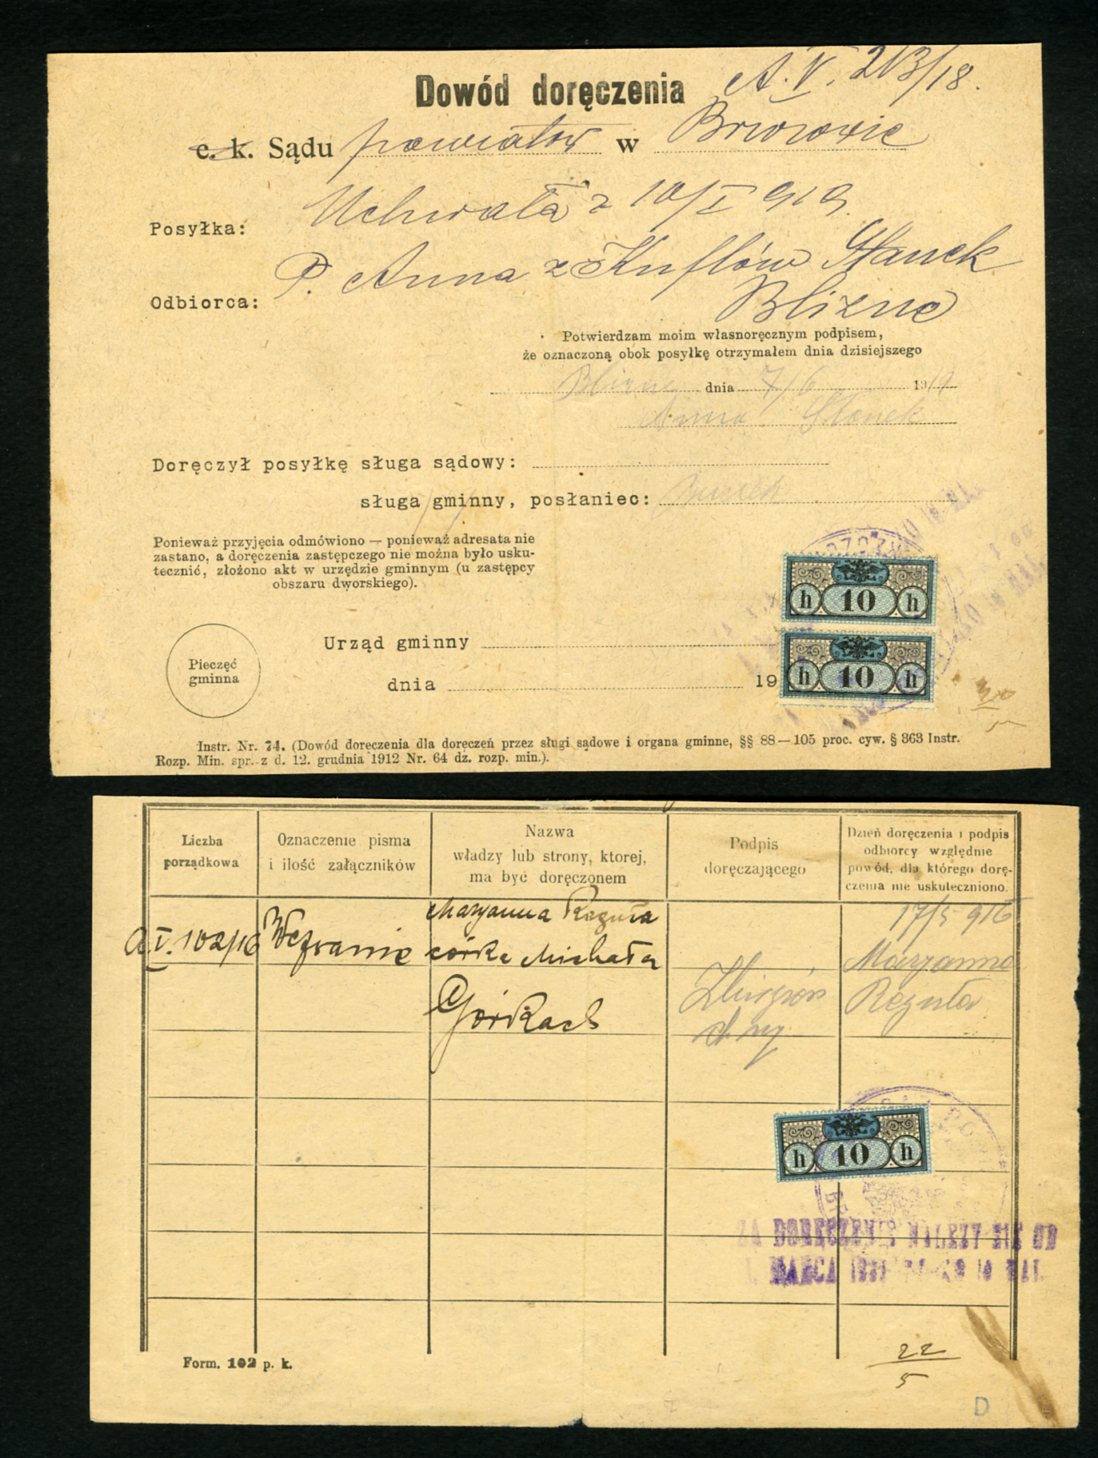 Dowód doręczenia A. V. 213/18.
c. k. Sądu powiatow w Brzozowie
Posyłka: Uchwała z 10/I 919.
Odbiorca: P. Anna z Kuflów Stanek
Blizne
Potwierdzam moim własnoręcznym podpisem,
że oznaczoną obok posyłkę otrzymałem dnia dzisiejszego
Blizne dnia 7/6 19
Anna Stanek
Doręczył posyłkę sługa sądowy:
sługa gminny, posłaniec:
Ponieważ przyjęcia odmówiono — ponieważ adresata nie
zastano, a doręczenia zastępczego nie można było usku-
tecznić, złożono akt w urzędzie gminnym (u zastępcy
obszaru dworskiego).
h 10 h
Urząd gminny
Pieczęć
gminna
dnia 19
h 10 h
Instr. Nr. 74. (Dowód doreczenia dla doręczeń przez sługi sądowe i organa gminne, §§ 88—105 proc. cyw. § 363 Instr.
Rozp. Min. spr. z d. 12. grudnia 1912 Nr. 64 dz. rozp. min.).
Liczba
porządkowa
Oznaczenie pisma
i ilość załączników
Nazwa
władzy lub strony, ktorej,
ma być doręczonem
Podpis
doręczającego
Dzień doręczenia i podpis
odbiorcy względnie
powód, dla którego dorę-
czenia nie uskuteczniono.
A. V. 102/16
Wezwanie
Maryanna Reguła
córka Michała
Górkach
17/5 916
Maryanna
Reguła
h 10 h
ZA DORĘCZENIE NALEŻY SIĘ OD
1. MARCA
Form. 102 p. k.
22
5
D